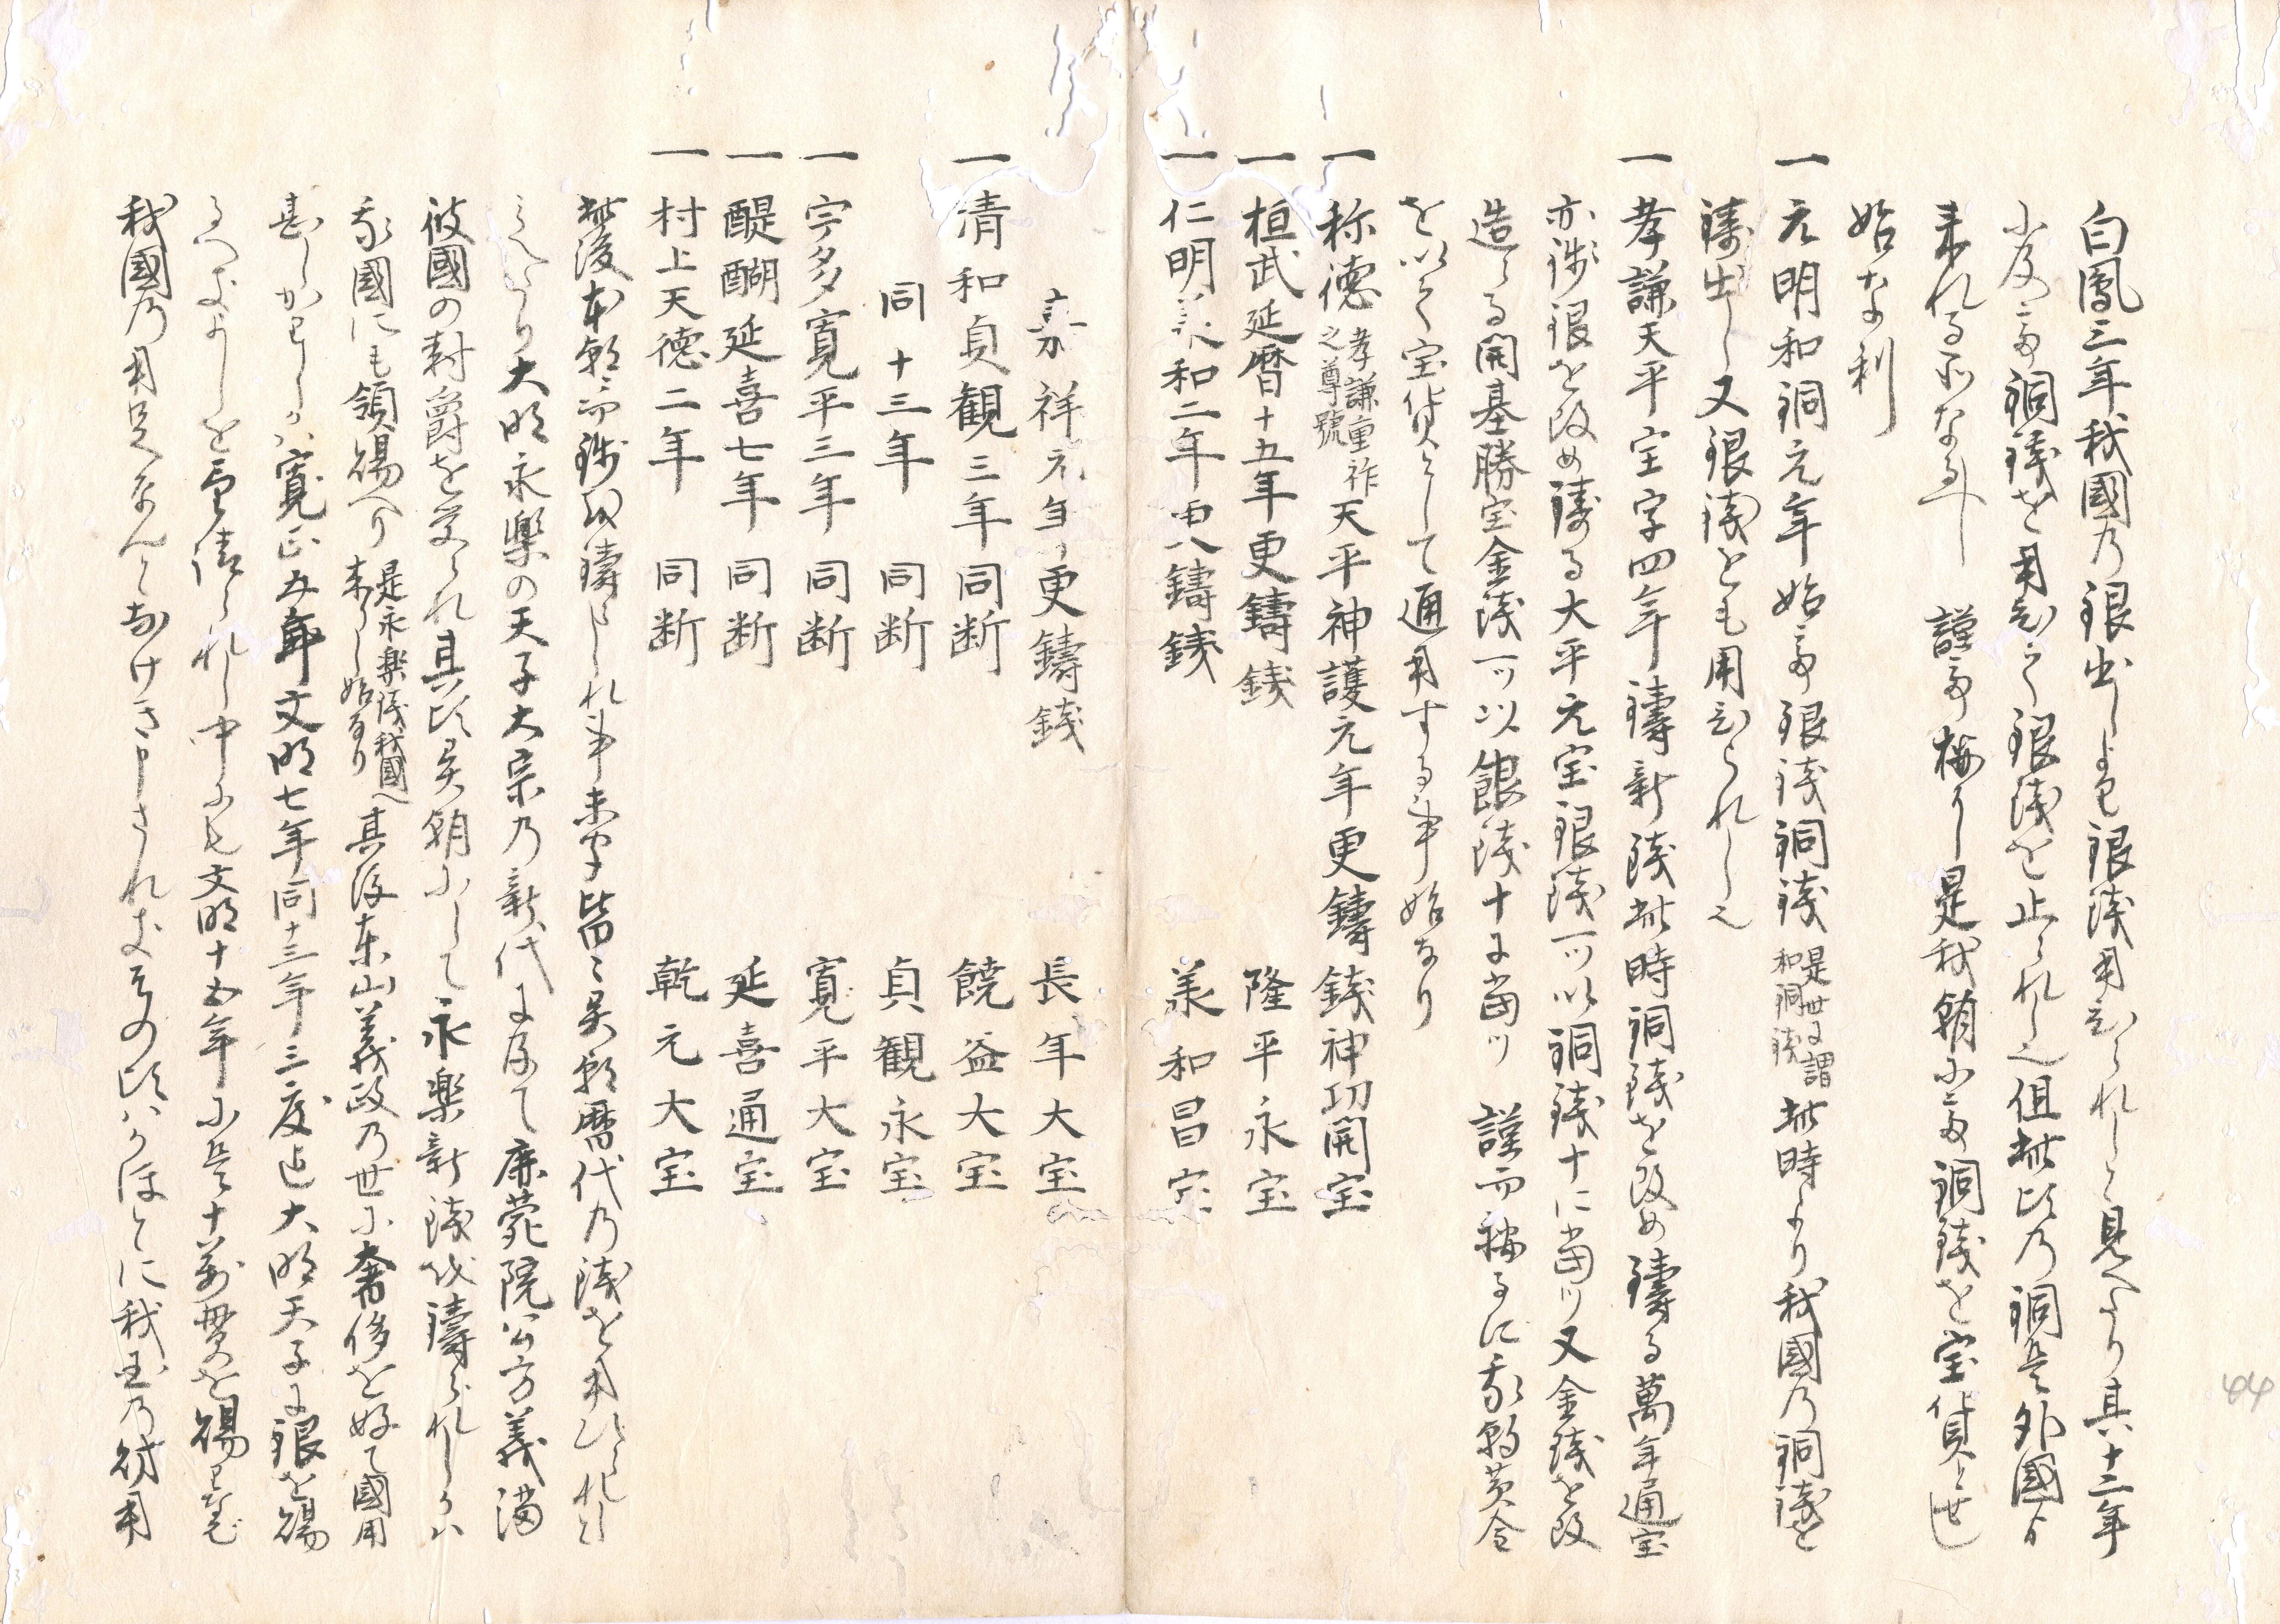 白鳳三年我國乃銀出しより銀銭用ひられしと見へたり其十二年
小及て銅銭を用ひて銀銭を止られし也但此比乃銅是外國より
来れる所なるへし 謹て按るに是我朝小て銅銭を宝貨とせし
始な利
一 元明和銅元年始て銀銭銅銭 是世に謂和銅銭 此時より我國乃銅銭を
鋳出し又銀銭とも用ひられし也
一 孝謙天平宝字四年鋳新銭此時銅銭を改め鋳る萬年通宝
亦渉銀を改め鋳る大平元宝銀銭一ツ以銅銭十に當ツ又金銭を改
造らる開基勝宝金銭一ツ以銀銭十に當ツ 謹而按るに我朝黄金
を以て宝貨として通用する事始なり
一 称徳 孝謙重祚之尊號 天平神護元年更鑄銭神功開宝
一 桓武延暦十五年更鑄銭 隆平永宝
一 仁明羕和二年更鑄銭 羕和昌宝
嘉祥元年更鑄銭 長年大宝
一 清和貞観三年同断 饒益大宝
同十三年 同断 貞観永宝
一 宇多寛平三年 同断 寛平大宝
一 醍醐延喜七年 同断 延喜通宝
一 村上天徳二年 同断 乾元大宝
此後本朝而銭を鑄られし事未聞皆々異朝暦代乃銭を用ひられしと
見へたり大明永樂の天子大宗乃新代に及て鹿菀院公方義満
彼國の封爵を受られ其比異朝小して永樂新銭を鑄られしかハ
我國にも領賜へり 是永楽銭我國へ来りし始なり 其後東山義政乃世に奢侈を好て國用
甚しかりしかハ寛正五年文明七年同十三年三度迄大明天子に銀を賜
るへきよしを望請られし中にも文明十五年小是十萬貫を賜り
我國乃用足なんと歎け申されき其比ハ我国乃財用